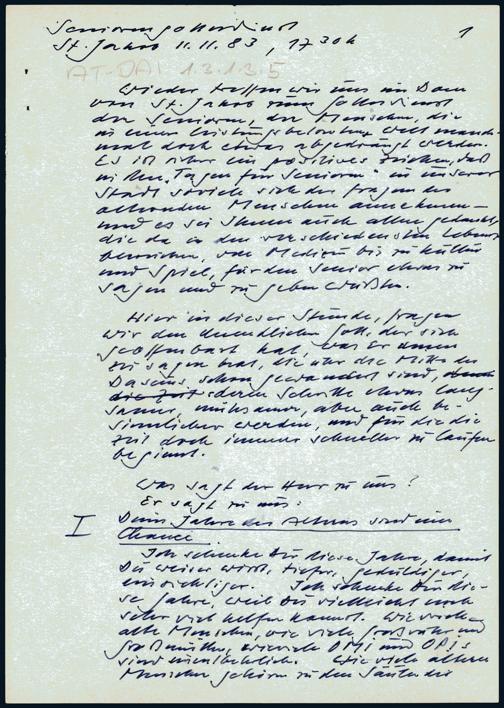 Seniorengottesdienst
St. Jakob 11.11.83, 17 30h
1
AT-DAI 1.3.1.3.5
Wieder treffen wir uns im Dom
von St. Jakob zum Gottesdienst
der Senioren, der Menschen, die
in einer leistungsbetonten Welt manch-
mal doch etwas abgedrängt werden.
Es ist sicher ein positives Zeichen, daß
in den „Tagen für Senioren" in unserer
Stadt soviele sich der Fragen des
alternden Menschen annehmen –
und es sei Ihnen auch allen gedankt,
die da in den verschiedensten Lebens-
bereichen, von Medizin bis zu Kultur
und Spiel, für den Senior etwas zu
sagen und zu geben wußten.
Hier in dieser Stunde, fragen
wir den unendlichen Gott, der sich
geoffenbart hat, was Er denen
zu sagen hat, die über die Mitte des
Daseins schon gewandert sind,
die Zeit deren Schritte etwas lang-
samer, mühsamer, aber auch be-
sinnlicher werden, und für die die
Zeit doch immer schneller zu laufen
beginnt.
Was sagt der Herr zu uns?
Er sagt zu uns:
I Deine Jahre des Alterns sind eine
Chance.
Ich schenke Dir diese Jahre, damit
Du weiser wirst, tiefer, geduldiger,
einsichtiger. Ich schenke Dir die-
se Jahre, weil Du vielleicht noch
sehr viel helfen kannst. Wie viele
alte Menschen, wie viele Großväter und
Großmütter, wieviele OMIs und OPIs
sind unentbehrlich. Wie viele ältere
Menschen gehören zu den Säulen der